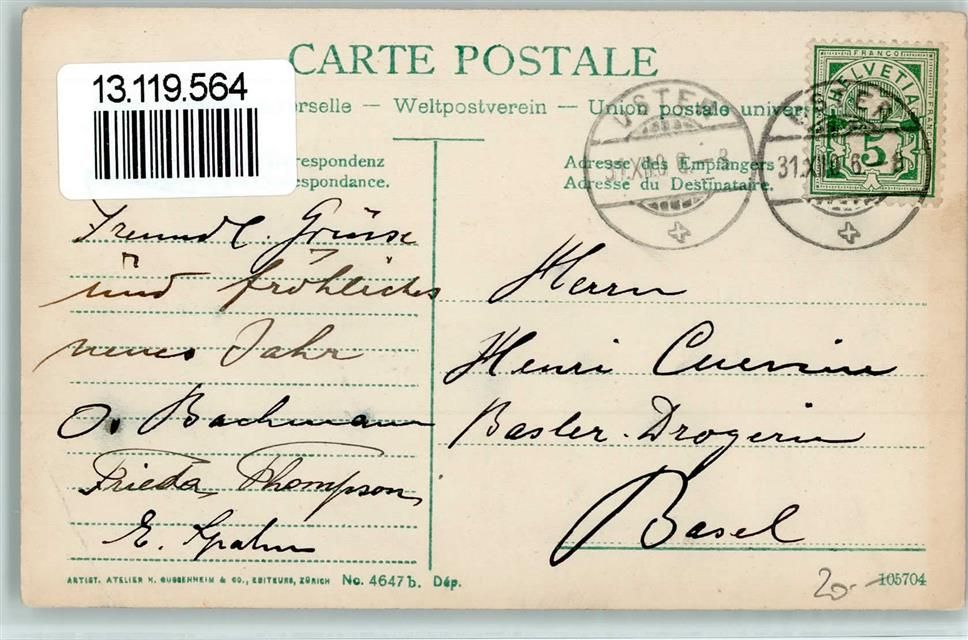 CARTE POSTALE
13.119.564
erselle — Weltpostverein — Union postale univers
respondenz
espondance.
Adresse des Empfängers
Adresse du Destinataire.
USTER
31.XII.06.–8
USTER
31.XII.06.–8
FRANCO
HELVETIA
FRANCO
5
Freundl. Grüsse
und fröhliches
neues Jahr
O. Bachmann
Frieda Thompson,
E. Spahn
Herrn
Henri
Basler-Drogerie
Basel
ARTIST. ATELIER H. GUGGENHEIM & CO., EDITEURS, ZÜRICH No. 4647b. Dép.
20.-
105704